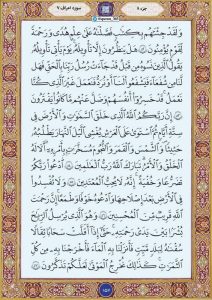 جزء ۸
سوره اعراف ۷
وَلَقَدْ جِئْنَٰهُم بِكِتَٰبٍ فَصَّلْنَٰهُ عَلَىٰ عِلْمٍ هُدًى وَرَحْمَةً
لِّقَوْمٍ يُؤْمِنُونَ ۝٥٢ هَلْ يَنظُرُونَ إِلَّا تَأْوِيلَهُۥ يَوْمَ يَأْتِى تَأْوِيلُهُۥ
يَقُولُ ٱلَّذِينَ نَسُوهُ مِن قَبْلُ قَدْ جَآءَتْ رُسُلُ رَبِّنَا بِٱلْحَقِّ فَهَل
لَّنَا مِن شُفَعَآءَ فَيَشْفَعُوا۟ لَنَآ أَوْ نُرَدُّ فَنَعْمَلَ غَيْرَ ٱلَّذِى كُنَّا
نَعْمَلُ قَدْ خَسِرُوٓا۟ أَنفُسَهُمْ وَضَلَّ عَنْهُم مَّا كَانُوا۟ يَفْتَرُونَ
۝٥٣ إِنَّ رَبَّكُمُ ٱللَّهُ ٱلَّذِى خَلَقَ ٱلسَّمَٰوَٰتِ وَٱلْأَرْضَ فِى
سِتَّةِ أَيَّامٍ ثُمَّ ٱسْتَوَىٰ عَلَى ٱلْعَرْشِ يُغْشِى ٱلَّيْلَ ٱلنَّهَارَ يَطْلُبُهُۥ
حَثِيثًا وَٱلشَّمْسَ وَٱلْقَمَرَ وَٱلنُّجُومَ مُسَخَّرَٰتٍۭ بِأَمْرِهِۦٓ أَلَا لَهُ
ٱلْخَلْقُ وَٱلْأَمْرُ تَبَارَكَ ٱللَّهُ رَبُّ ٱلْعَٰلَمِينَ ۝٥٤ ٱدْعُوا۟ رَبَّكُمْ
تَضَرُّعًا وَخُفْيَةً إِنَّهُۥ لَا يُحِبُّ ٱلْمُعْتَدِينَ ۝٥٥ وَلَا تُفْسِدُوا۟
فِى ٱلْأَرْضِ بَعْدَ إِصْلَٰحِهَا وَٱدْعُوهُ خَوْفًا وَطَمَعًا إِنَّ رَحْمَتَ
ٱللَّهِ قَرِيبٌ مِّنَ ٱلْمُحْسِنِينَ ۝٥٦ وَهُوَ ٱلَّذِى يُرْسِلُ ٱلرِّيَٰحَ
بُشْرًۢا بَيْنَ يَدَىْ رَحْمَتِهِۦ حَتَّىٰٓ إِذَآ أَقَلَّتْ سَحَابًا ثِقَالًا
سُقْنَٰهُ لِبَلَدٍ مَّيِّتٍ فَأَنزَلْنَا بِهِ ٱلْمَآءَ فَأَخْرَجْنَا بِهِۦ مِن كُلِّ
ٱلثَّمَرَٰتِ كَذَٰلِكَ نُخْرِجُ ٱلْمَوْتَىٰ لَعَلَّكُمْ تَذَكَّرُونَ ۝٥٧
۱۵۷